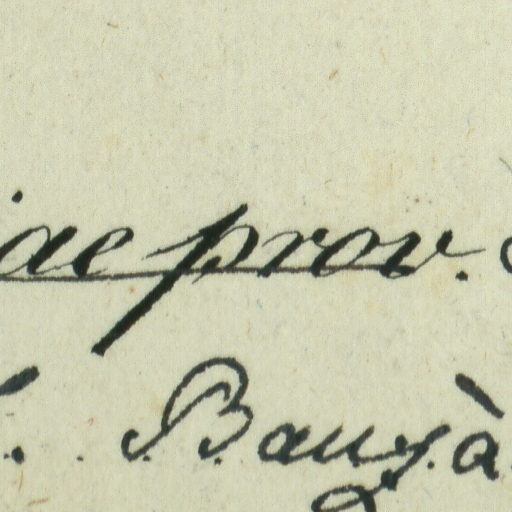 iae prov.
B. Bauzà